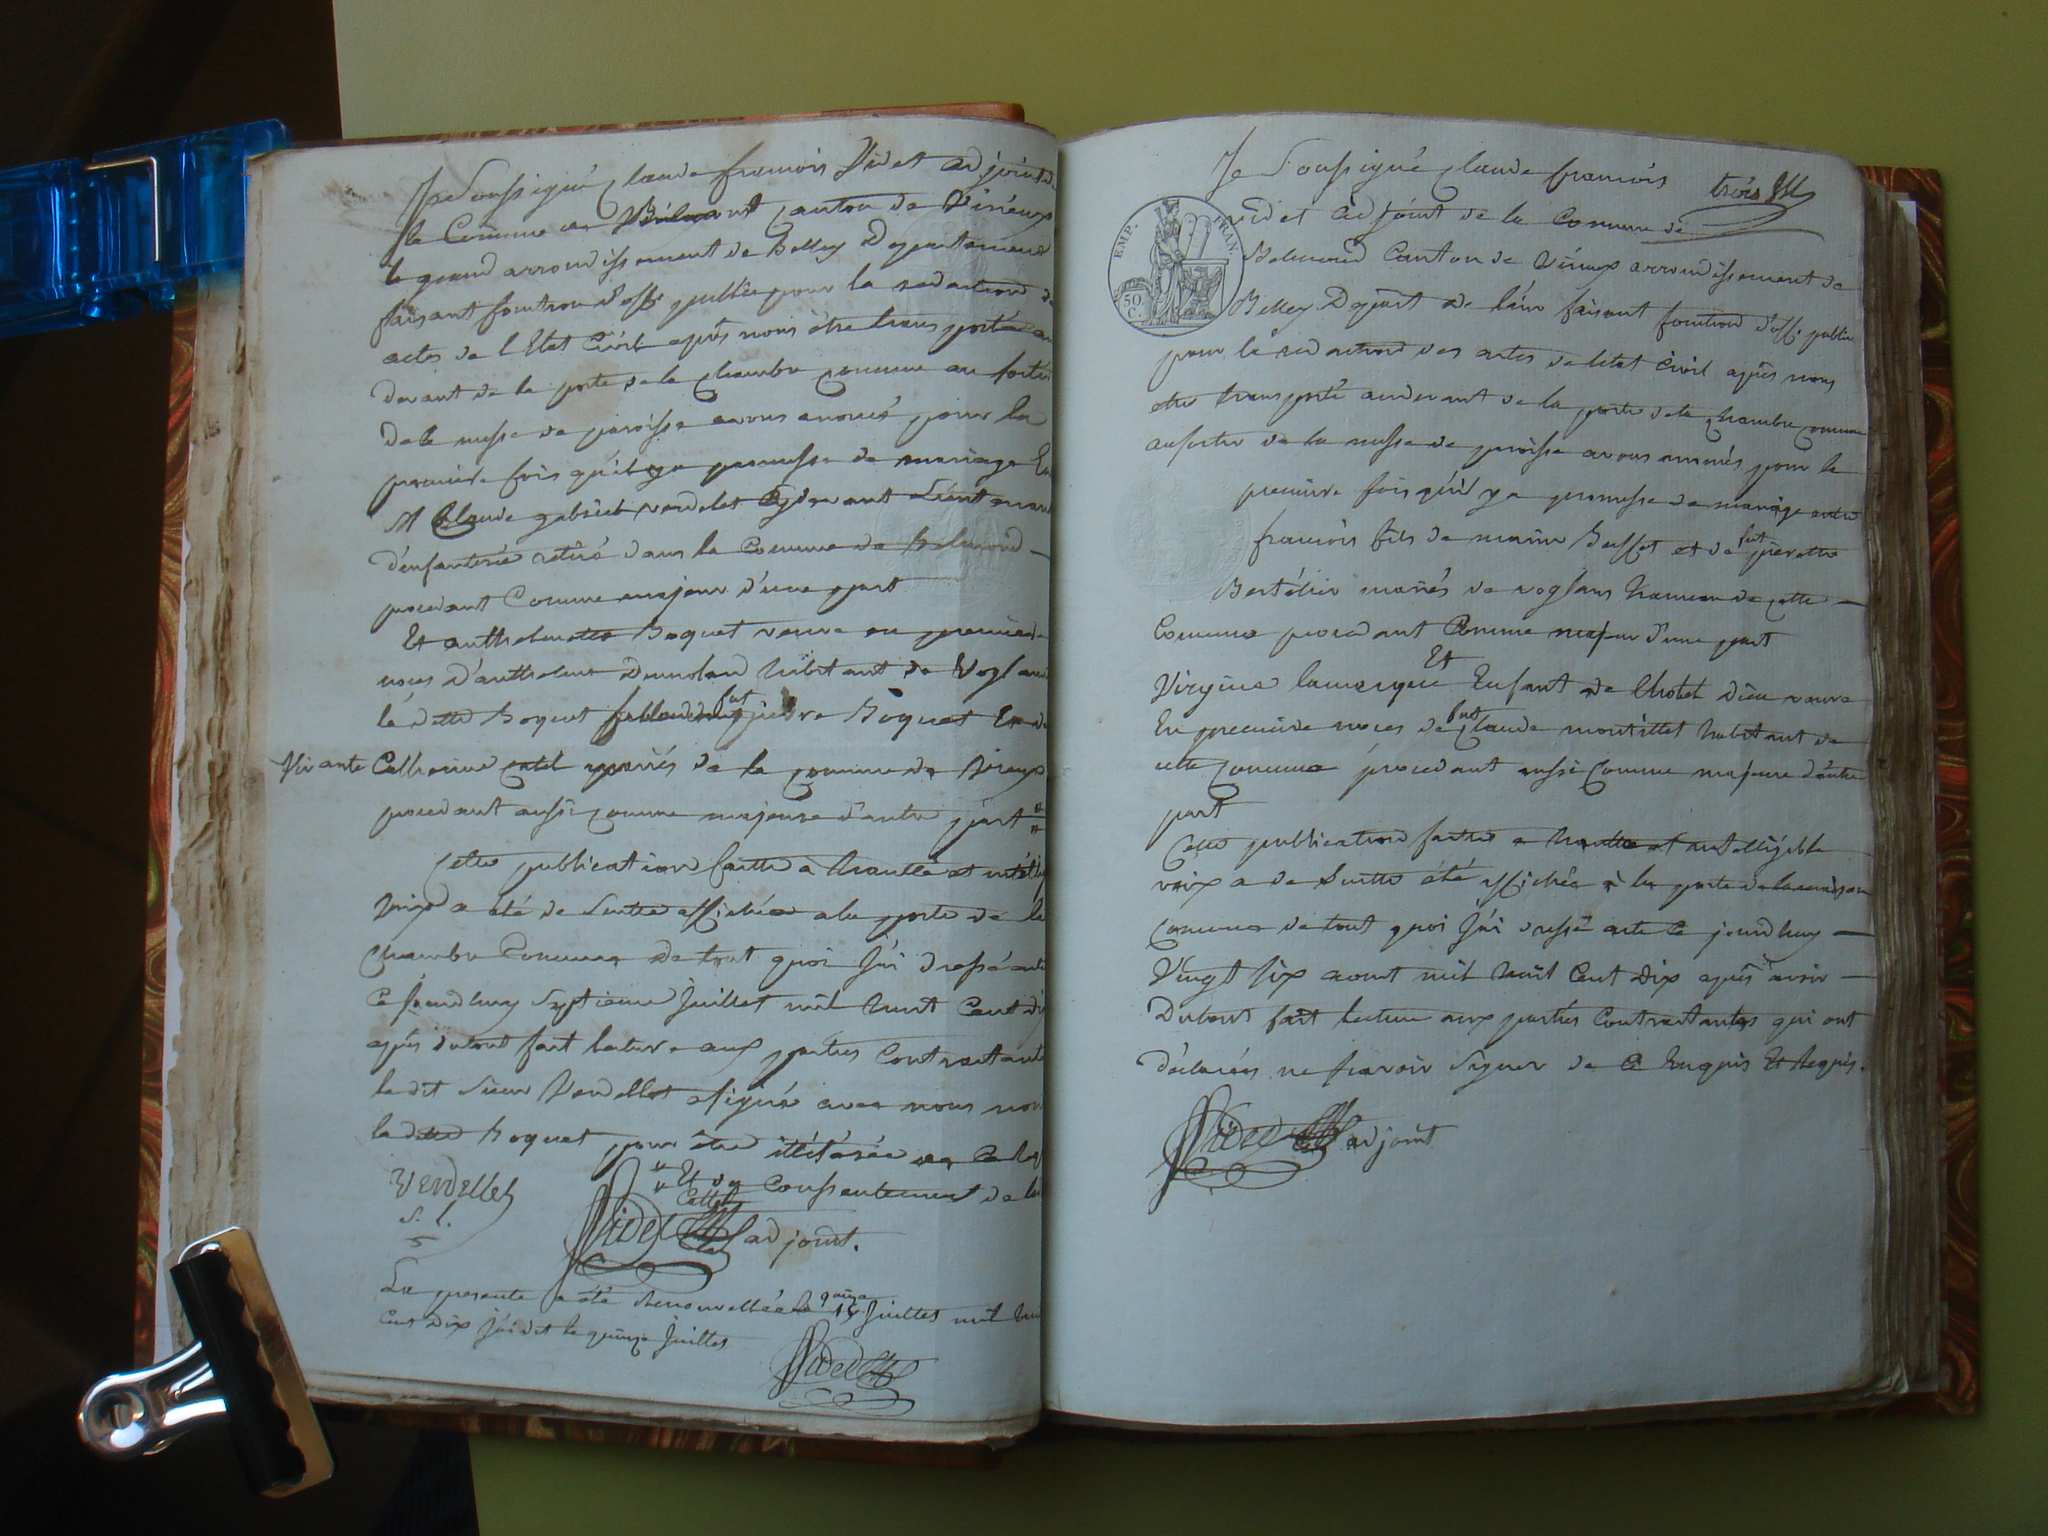 Je Soussigné Claude francois Videt adjoint de
la Commune de Belmont Canton de Virieux
le grand arrondissement de Belley Departement
faisant fonction d'offi. public pour la redaction de
actes de l'Etat Civil après nous être transporté au
devant de la porte de la Chambre Comune au sortir
de la messe de paroisse avons anoncé pour la
première fois qu'il y a promesse de mariage En
M Claude gabriel verdelet Lieutenant
d'enfanterie retiré dans la Comune de Belmond
procedant Comme majeur d'une part
Et anthelmette Boquet veuve en première
noces d'anthelme Dumolard habitant de Voglan
la ditte Boquet fille de fut pierre Boquet Et de
Vivante Catherine mariés de la comune de Virieux
procedant aussi comme majeure d'autre part
Cette publication faitte à haute et intelig
voix a été de suitte affichée a la porte de la
Chambre Comune de tout quoi J'ai dressé acte
Ce jourdhuy Septieme Juillet mil huit Cent dix
après avoir fait lecture aux parties Contractante
le dit Sieur Verdellet a signé avec nous non
la ditte Boquet pour être illétérée de Ce Req
Et du Consentement de la
Verdellet
S. L.
Videt adjoint.
La presente a été Renouvellée le quinze 15 Juillet mil huit
Cent Dix J'ai dit le quinze Juillet
Videt
Je Soussigné Claude francois trois
videt adjoint de la Comune de
EMP. FRAN.
50 C.
Belmond Canton de Virieux arrondissement de
Belley Depart de l'ain faisant fonction d'offi. public
pour la redaction des actes de letat Civil après nous
etre transporté audevant de la porte de la Chambre Comune
au sortir de la messe de paroisse avons anoncés pour la
première fois qu'il y a promesse de mariage entre
francois fils de marin Busset et de fut pierrette
Bertélier mariés de voglans hameau de cette
Comune procedant Comme majeur d'une part
Et
Virginie Enfant de l'hotel dieu veuve
En première noces de fut Claude montillet habitant de
cette Comune procedant aussi Comme majeure d'autre
part
Cette publication faitte a haute et intelligible
voix a de suitte été affichée à la porte de la maison
Comune de tout quoi J'ai dressé acte Ce jourdhuy
Vingt six aout mil huit Cent Dix après avoir
Dabort fait lecture aux parties Contractantes qui ont
déclarés ne savoir signer de Ce Enquis Et Requis.
Videt adjoint